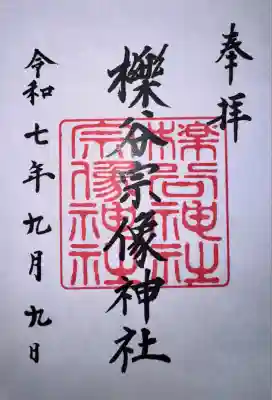 奉拝
櫟谷宗像神社
櫟谷神社
宗像神社
令和七年九月九日